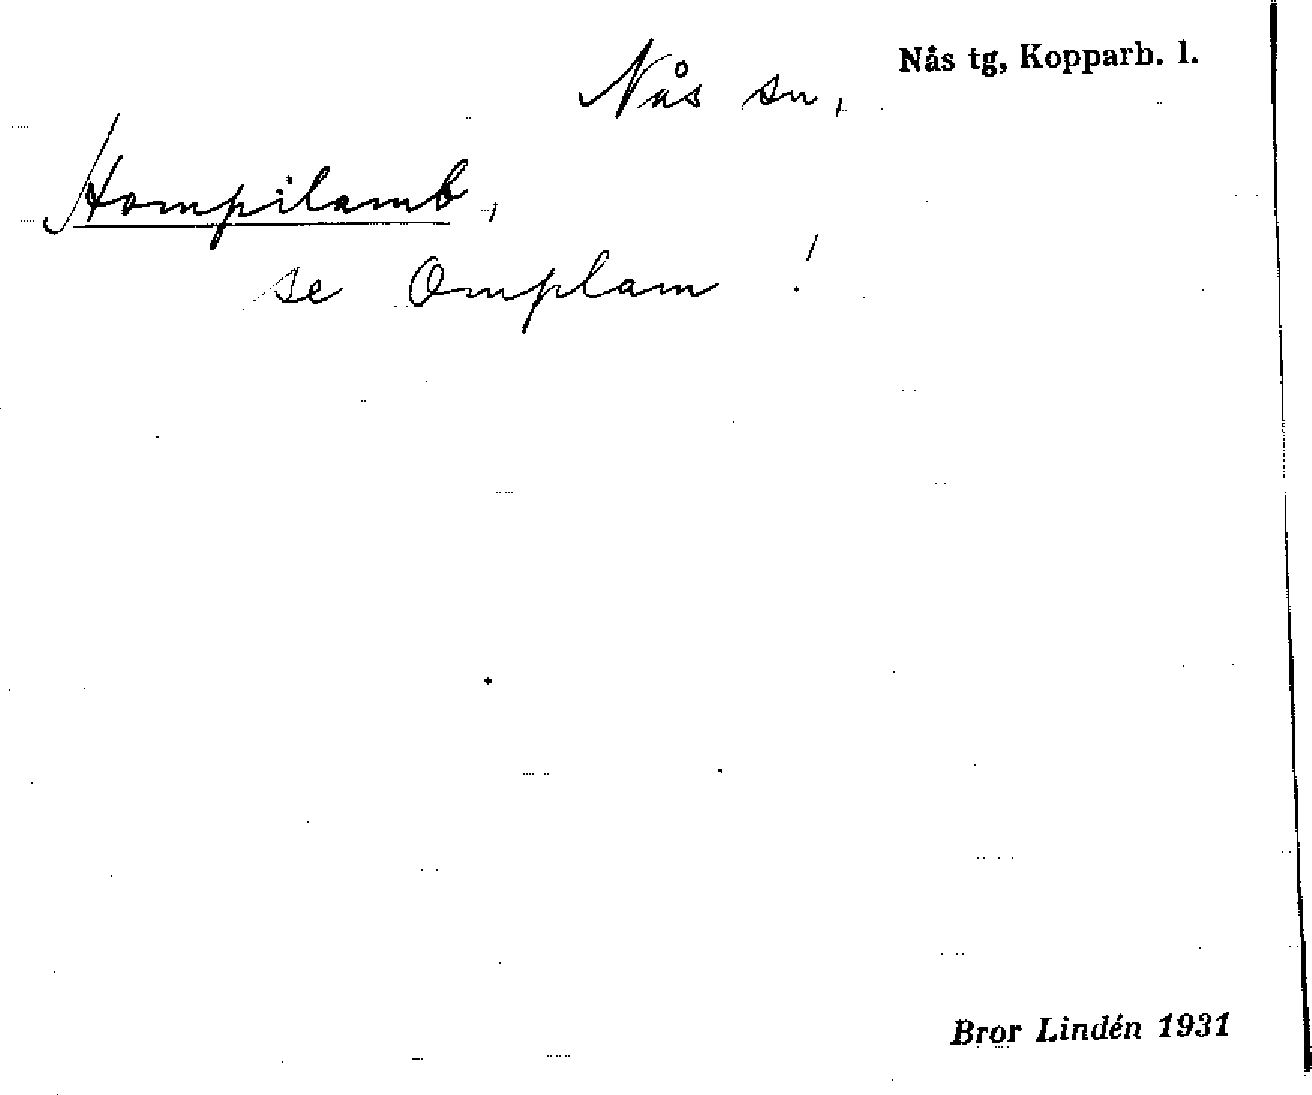 Nås sn, Nås tg, Kopparb. l.
Hompilamb,
se Omplam !
Bror Lindén 1931